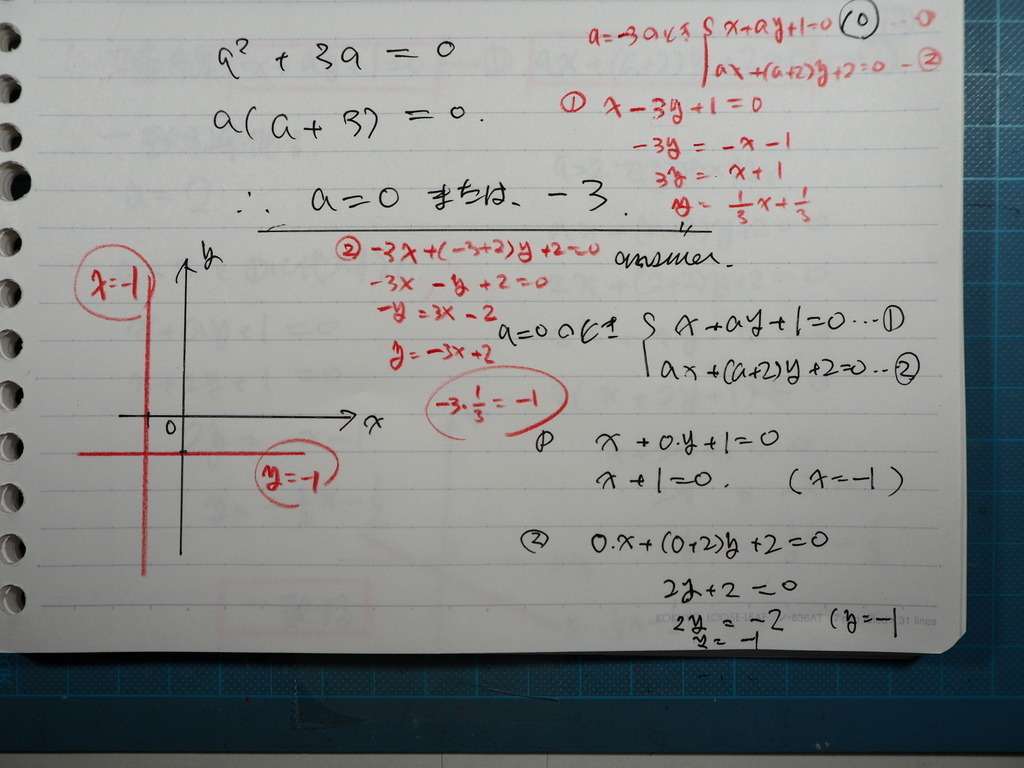 a² + 3a = 0
a(a + 3) = 0.
∴ a = 0 または、 -3.
answer.
a=-3のとき { x+ay+1=0 … ①
ax+(a+2)y+2=0 … ②
① x - 3y + 1 = 0
-3y = -x - 1
3y = x + 1
y = 1/3 x + 1/3
② -3x + (-3+2)y + 2 = 0
-3x - y + 2 = 0
-y = 3x - 2
y = -3x + 2
-3・1/3 = -1
x=-1
y
x
0
y=-1
a=0のとき { x + ay + 1 = 0 … ①
ax + (a+2)y + 2 = 0 … ②
① x + 0・y + 1 = 0
x + 1 = 0. (x = -1)
② 0・x + (0+2)y + 2 = 0
2y + 2 = 0
2y = -2 (y = -1
y = -1
31 lines